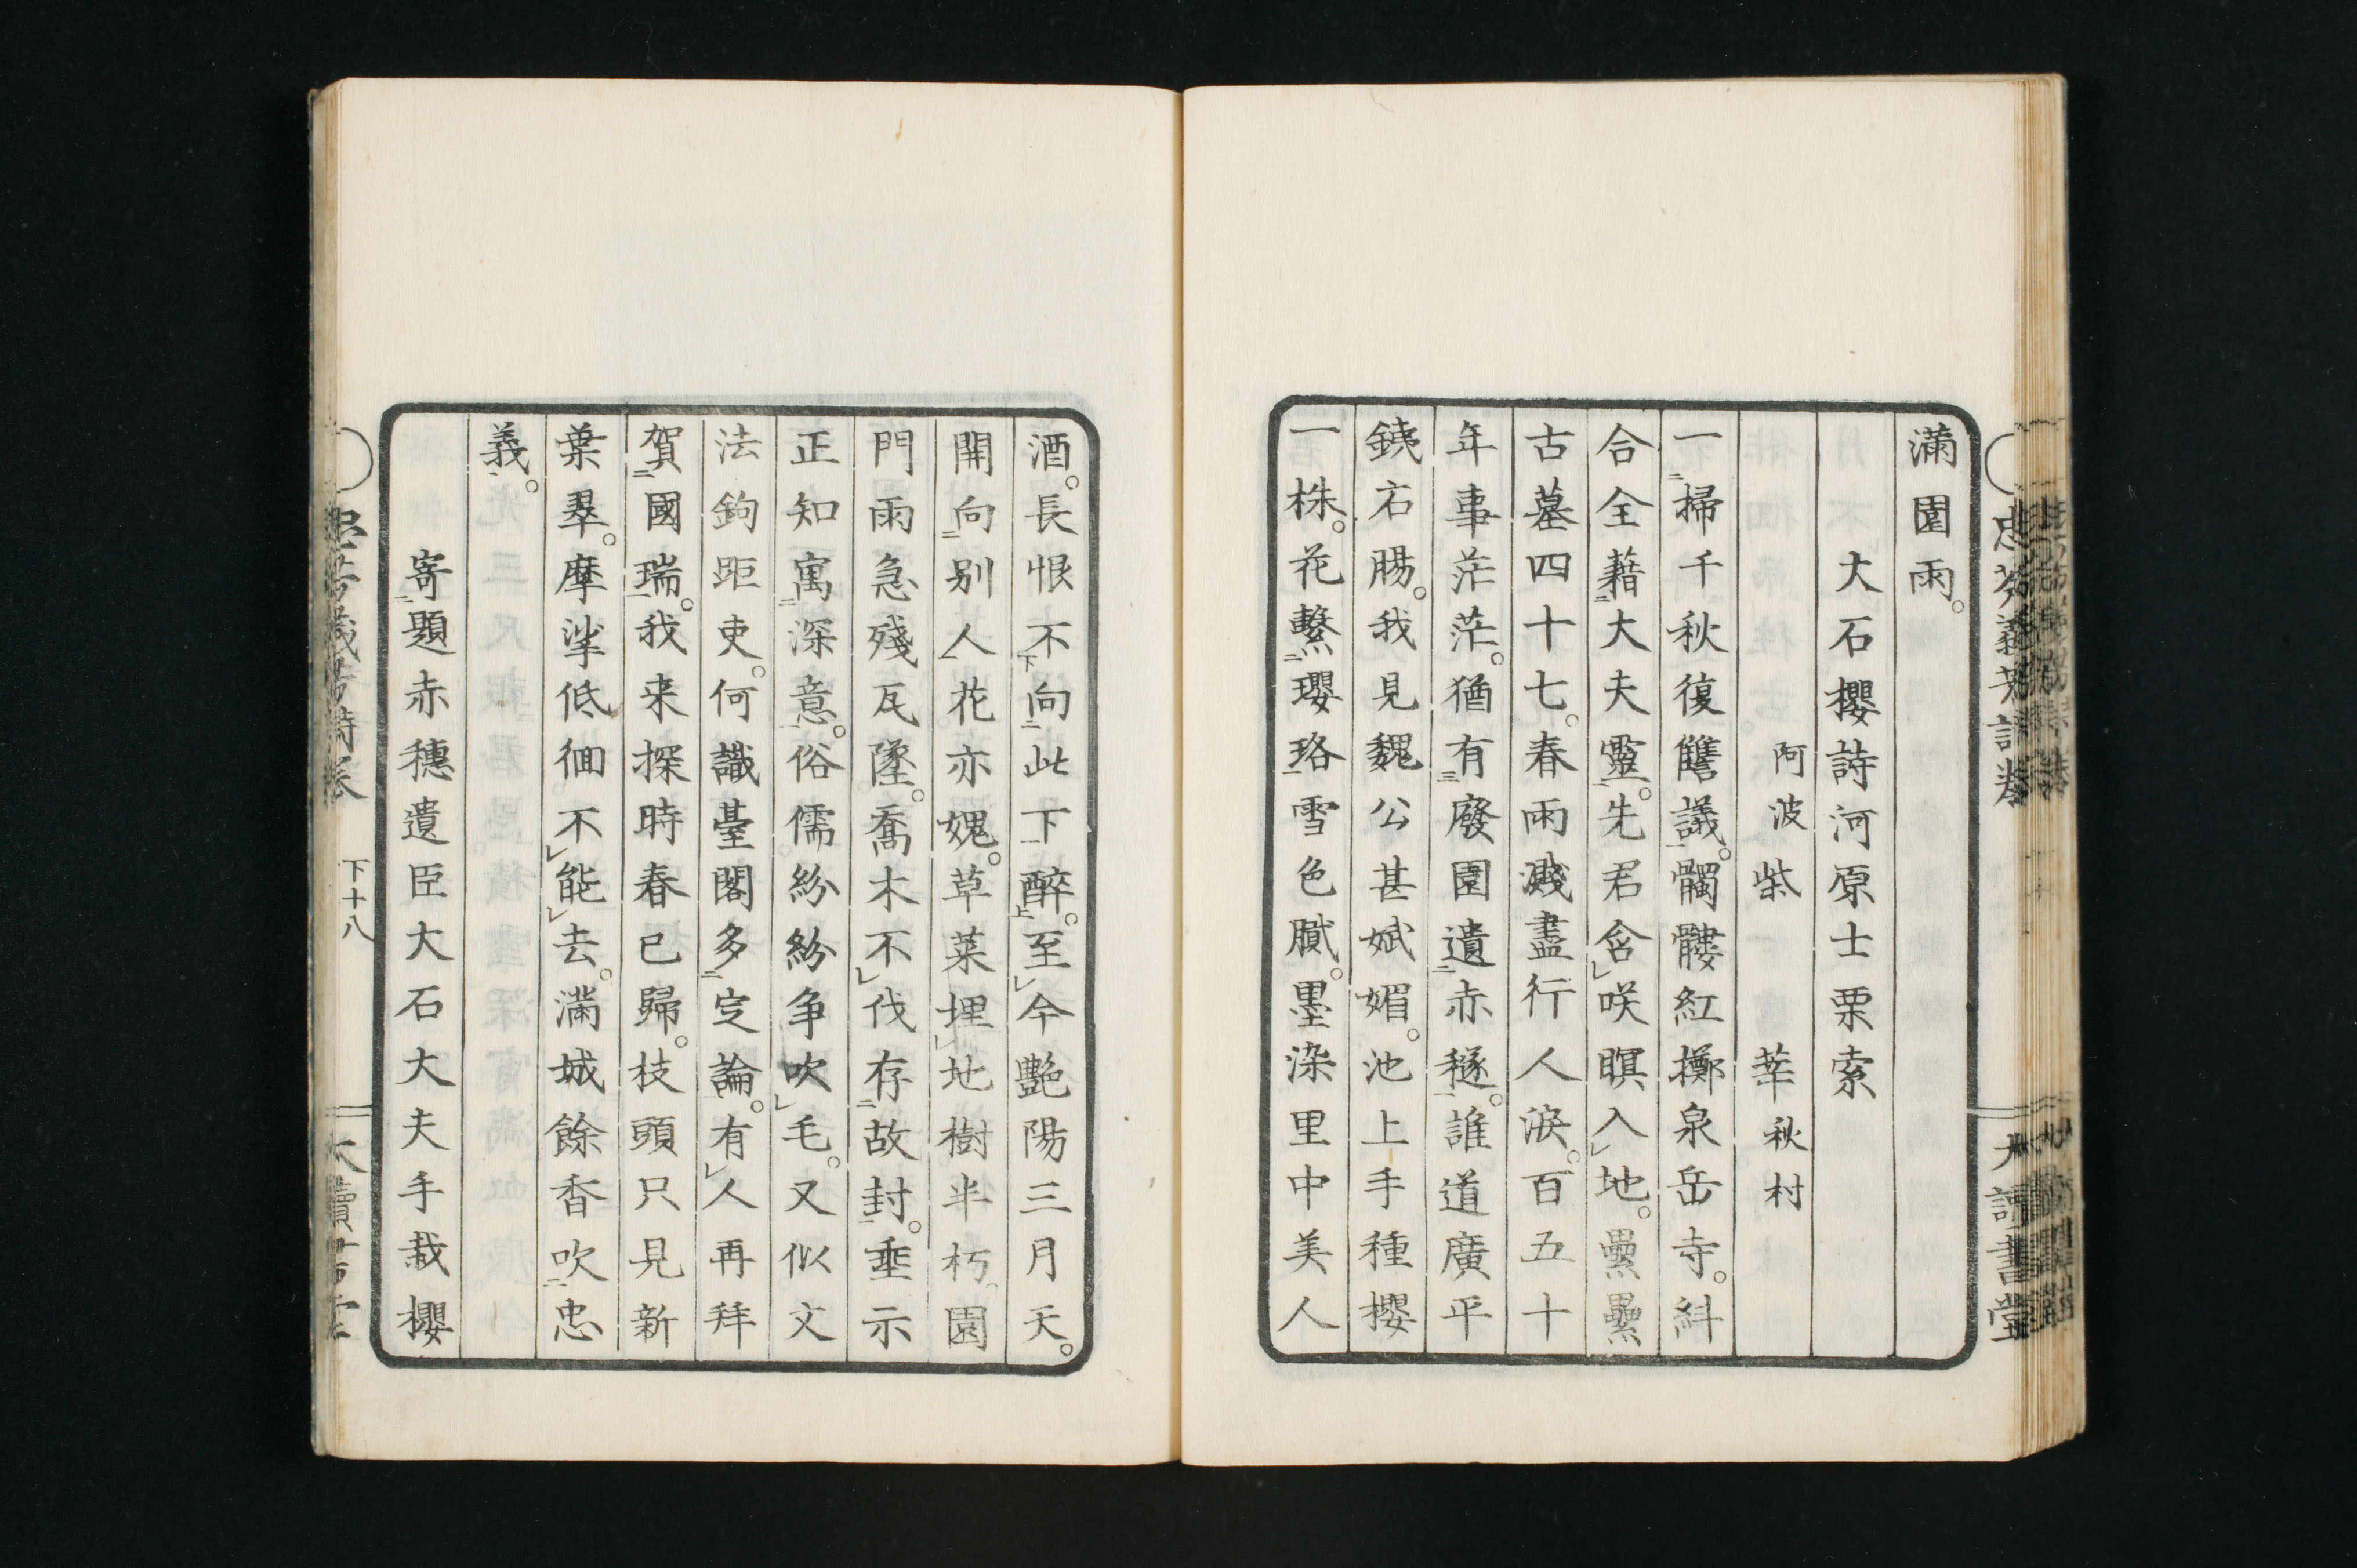 滿園雨。
大石櫻詩河原士栗索
阿波柴莘秋村
一掃千秋復讐議。髑髏紅擲泉岳寺。糾
合全藉大夫靈。先君含咲瞑入地。纍纍
古墓四十七。春雨濺盡行人淚。百五十
年事茫茫。猶有廢園遺赤穟。誰道廣平
銕石腸。我見魏公甚娬媚。池上手種櫻
一株。花繫瓔珞雪色膩。墨染里中美人
酒。長恨不向此下醉。至今艷陽三月天。
開向別人花亦媿。草菜埋地樹半朽。園
門雨急殘瓦墬。喬木不伐存故封。垂示
正知寓深意。俗儒紛紛爭吹毛。又似文
法鉤距吏。何識臺閣多定論。有人再拜
賀國瑞。我来探時春已歸。枝頭只見新
葉翠。摩挲低徊不能去。滿城餘香吹忠
義。
寄題赤穗遺臣大石大夫手栽櫻
忠芬義芳詩卷
下十八
大讀書堂